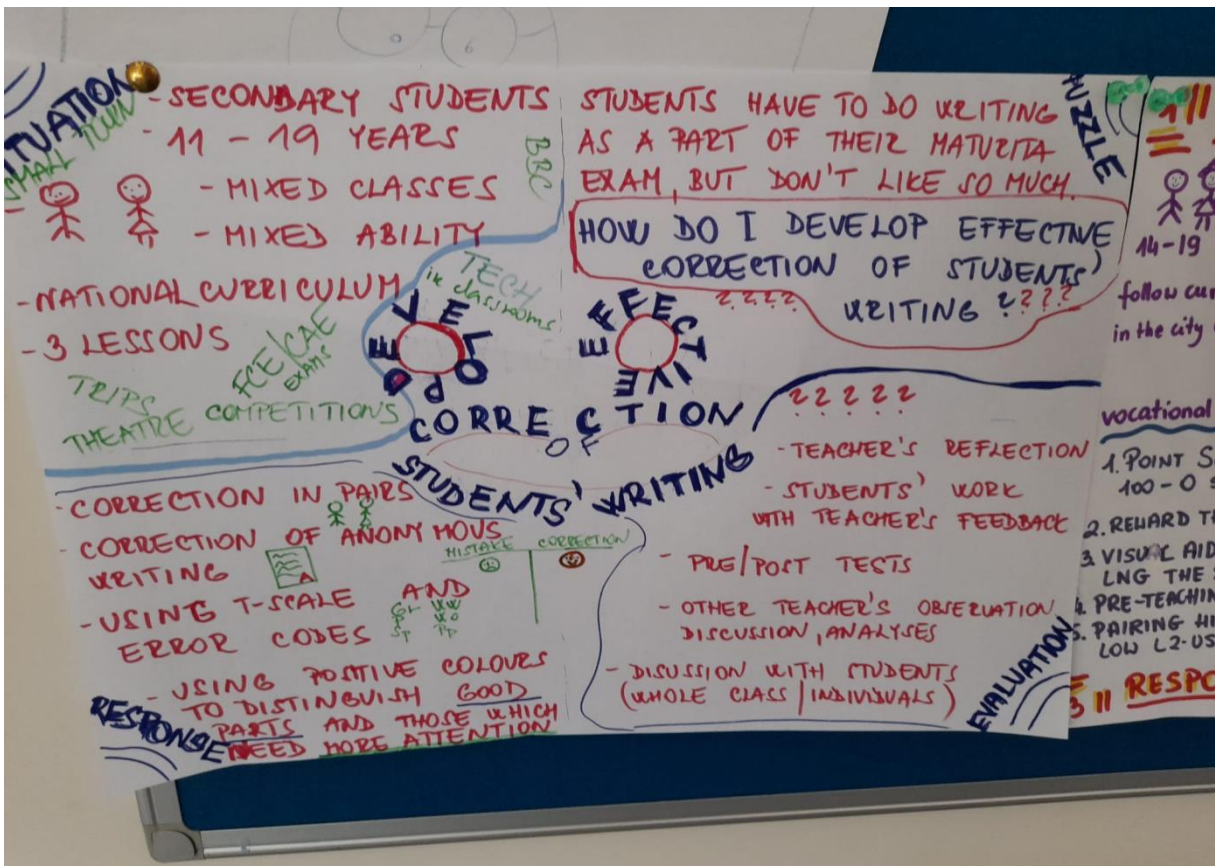 SITUATION
SMALL TOWN
- SECONDARY STUDENTS
- 11 - 19 YEARS
- MIXED CLASSES
- MIXED ABILITY
- NATIONAL CURRICULUM
- 3 LESSONS
BBC
TECH
in classrooms
FCE/CAE
EXAMS
TRIPS
THEATRE COMPETITIONS
PUZZLE
STUDENTS HAVE TO DO WRITING
AS A PART OF THEIR MATURITA
EXAM, BUT DON'T LIKE SO MUCH.
HOW DO I DEVELOP EFFECTIVE
CORRECTION OF STUDENTS'
WRITING ????
????
DEVELOP
EFFECTIVE
CORRECTION
OF
STUDENTS' WRITING
RESPONSE
- CORRECTION IN PAIRS
- CORRECTION OF ANONYMOUS
WRITING
MISTAKE CORRECTION
- USING T-SCALE AND
ERROR CODES
Gr WW
WO
SP PP
- USING POSITIVE COLOURS
TO DISTINGUISH GOOD
PARTS AND THOSE WHICH
NEED MORE ATTENTION
EVALUATION
?????
- TEACHER'S REFLECTION
- STUDENTS' WORK
WITH TEACHER'S FEEDBACK
- PRE/POST TESTS
- OTHER TEACHER'S OBSERVATION
DISCUSSION, ANALYSES
- DISUSSION WITH STUDENTS
(WHOLE CLASS / INDIVIDUALS)
14-19
follow cur
in the city
vocational
1. POINT S
100-0 S
2. REWARD TH
3. VISUAL AID
LNG THE
4. PRE-TEACHIN
5. PAIRING HI
LOW L2-US
RESPO